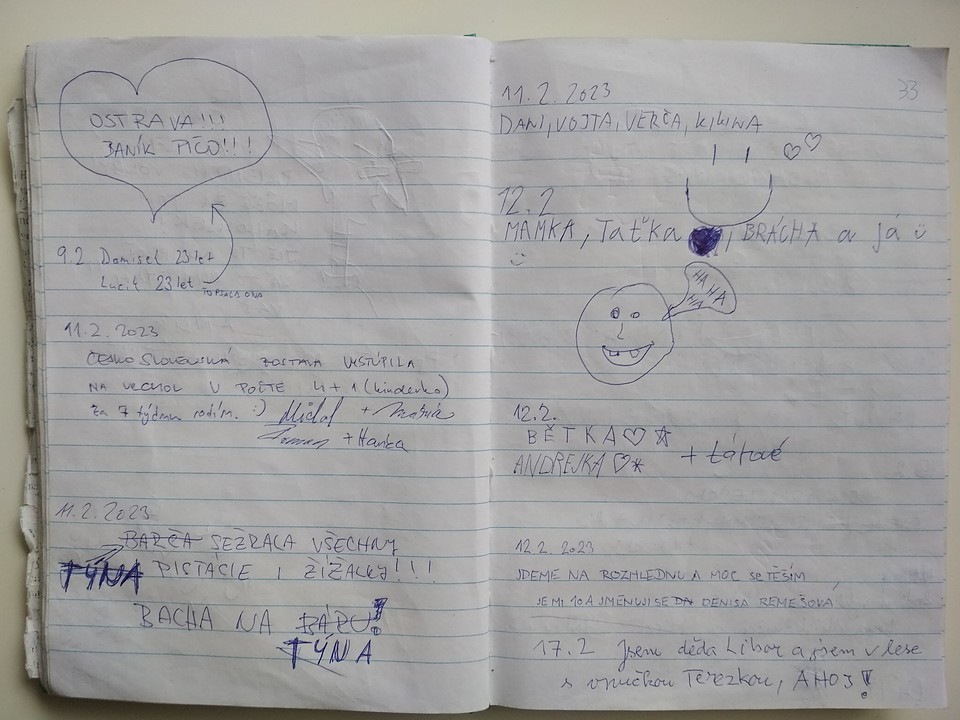 OSTRAVA!!!
BANÍK PIČO!!!
9.2 Daniel 23 let
Lucie 23 let TO PSALA ONA
11.2.2023
ČESKOSLOVENSKÁ ZOSTAVA VYSTÚPILA
NA VRCHOL V POČTE 4+1 (kinderko)
za 7 týdnu rodím. :) Michal +
Roman + Hanka
11.2.2023
BARČA SEŽRALA VŠECHNY
TÝNA PISTACIE I ŽÍŽALKY!!!
BACHA NA BÁRU!
TÝNA
33
11.2.2023
DANI, VOJTA, VERČA, KIKINA
12.2
MAMKA, Taťka, BRÁCHA a já
HA
HA
HA
HA
12.2.
BĚTKA♡☆
ANDREJKA♡* + tátové
12.2.2023
JDEME NA ROZHLEDNU A MOC SE TĚŠÍM
JE MI 10 A JMÉNUJI SE DA DENISA REMEŠOVÁ
17.2 Jsem děda Libor a jsem v lese
s vnučkou Terezkou, AHOJ!